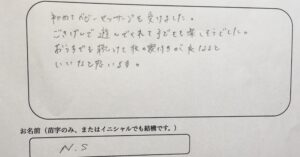 初めてベビーマッサージを受けました。
ごきげんで遊んでくれて子どもも楽しそうでした。
おうちでも続けて夜の寝付きが良くなると
いいなと思います。
お名前（苗字のみ、またはイニシャルでも結構です。）
N.S